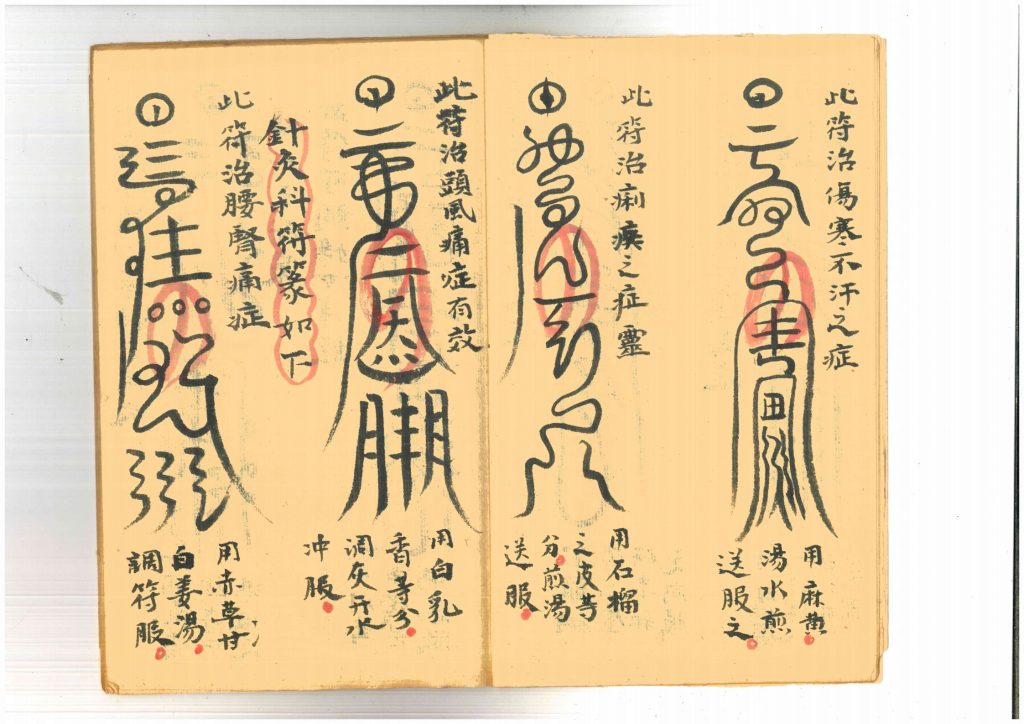 此符治傷寒不汗之症
用麻黄
湯水煎
送服之
此符治痢疾之症靈
用石榴
之皮等
分煎湯
送服
此符治頭風痛症有效
用白乳
香等分
調灰开水
冲服
針灸科符篆如下
此符治腰腎痛症
用赤草甘
白姜湯
調符服